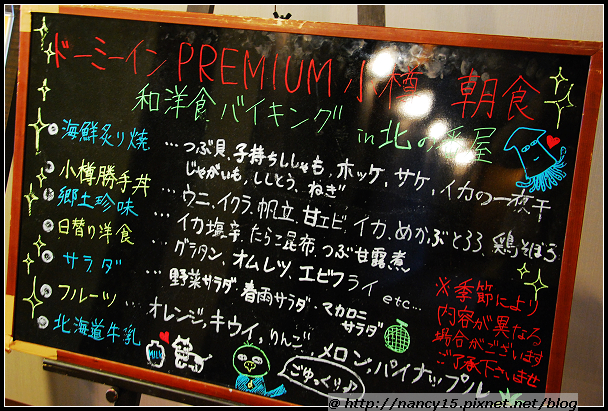 ドーミーイン PREMIUM 小樽 朝食
和洋食バイキング in 北の番屋
海鮮炙り焼 … つぶ貝、子持ちししゃも、ホッケ、サケ、イカの一夜干
じゃがいも、ししとう、ねぎ
小樽勝手丼 … ウニ、イクラ、帆立、甘エビ、イカ、めかぶとろろ、鶏そぼろ
郷土珍味 … イカ塩辛、たらこ昆布、つぶ甘露煮
日替り洋食 … グラタン、オムレツ、エビフライ etc…
サラダ … 野菜サラダ、春雨サラダ、マカロニ
サラダ
フルーツ … オレンジ、キウイ、りんご、メロン、パイナップル
北海道牛乳
MILK
ごゆっくり♪
※季節により
内容が異なる
場合がございます
ご了承下さいませ
@ http://nancy15.pixnet.net/blog